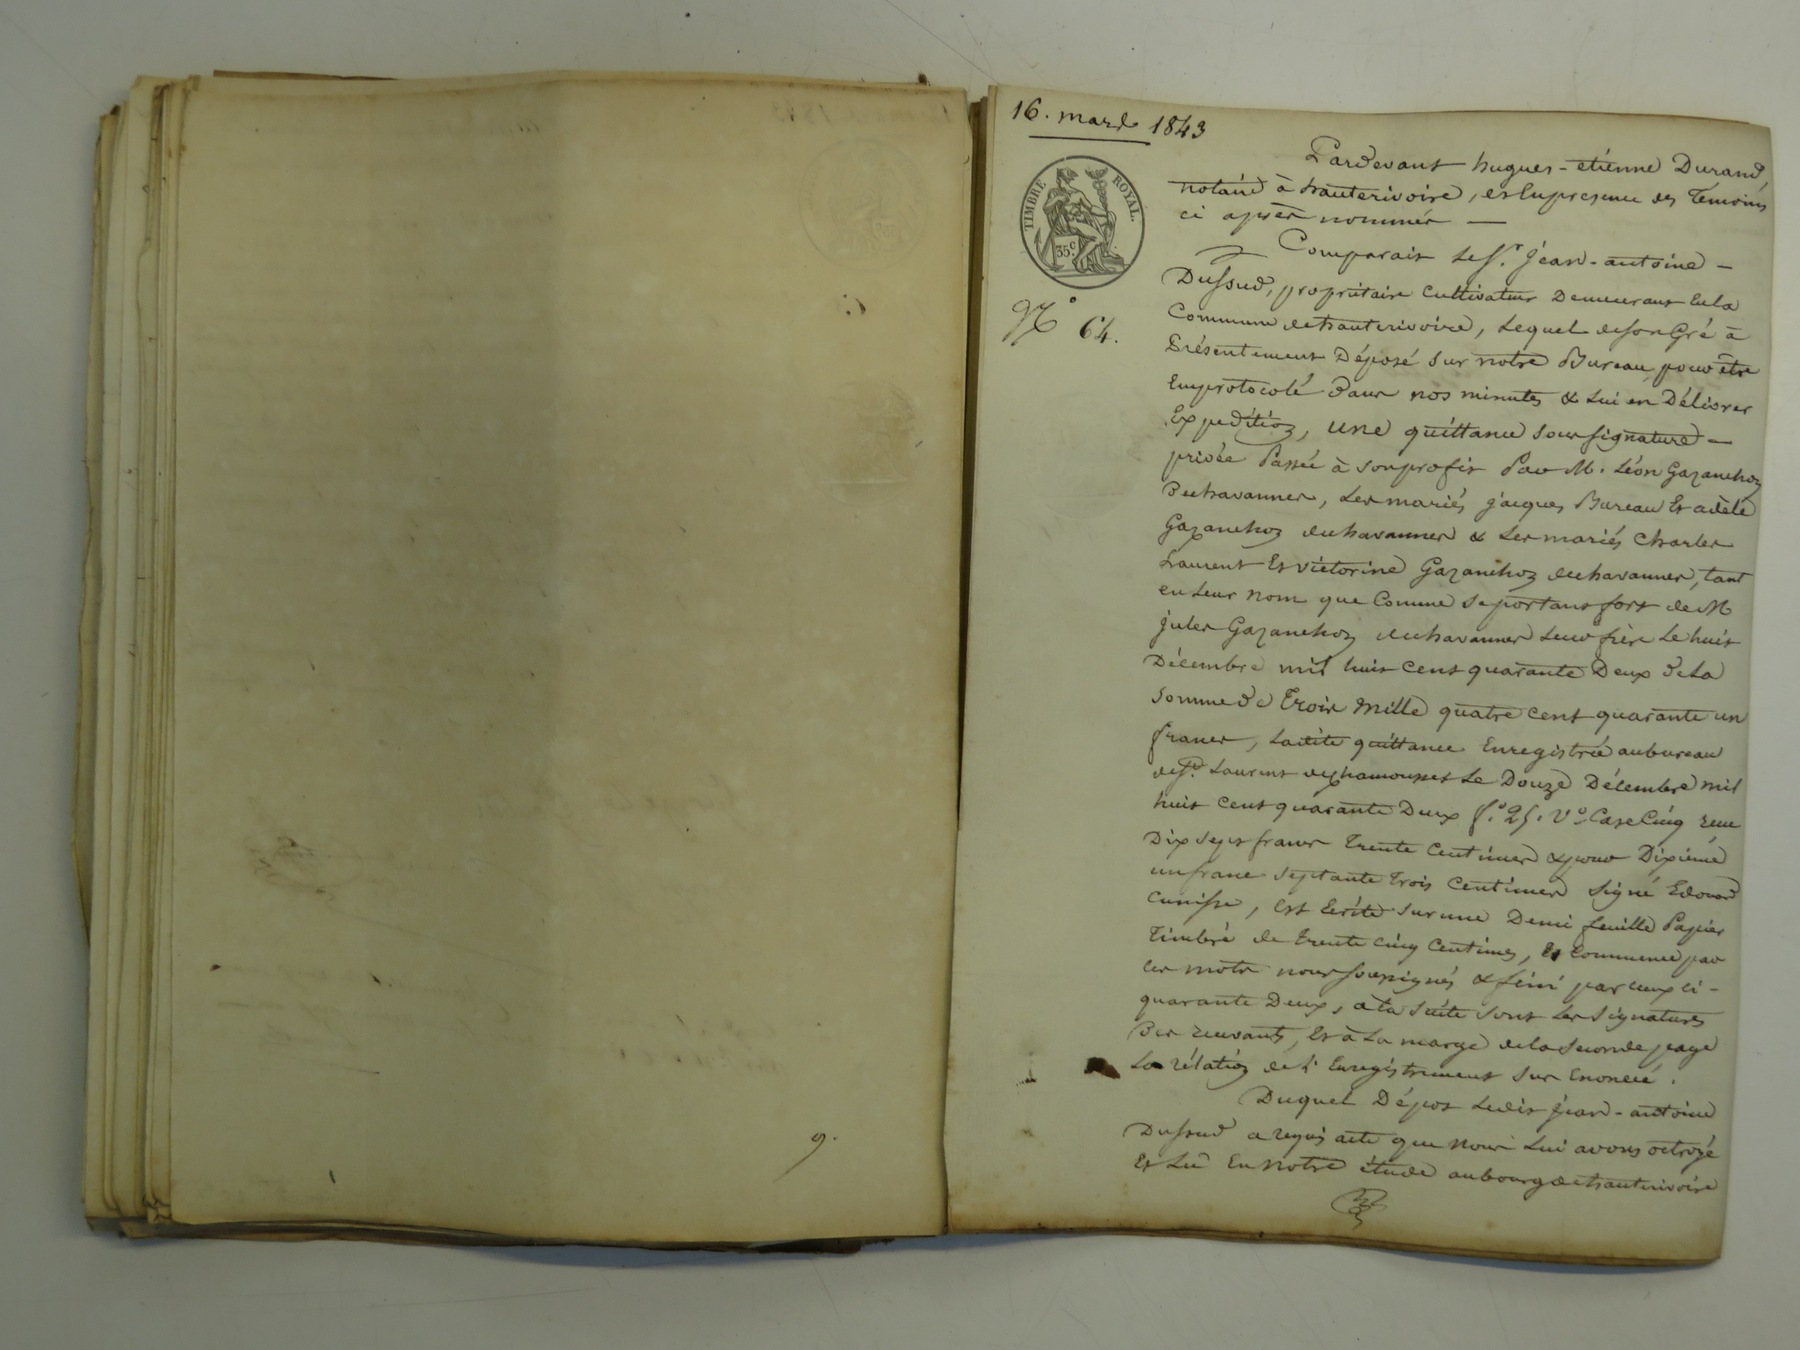 16. mars 1843
TIMBRE ROYAL.
35 c
N.° 64.
Pardevant hugues-etiénne Durand
notaire à hauterivoire, et En presence des Témoins
ci après nommés —
Comparait Le S.r jean-antoine —
Dussud, propriétaire Cultivateur Demeurant En la
Commune de hauterivoire, Lequel de son Gré à
Présentement Déposé sur notre Bureau pour être
Emprotocolé dans nos minutes & Lui en Délivrer
Expédition, une quittance sous signature —
privée Passée à son profit Par M. Léon Gazanchon
Les mariés jacques Bureau Et adèle
Gazanchon & Les mariés Charles
Laurent Et victorine Gazanchon tant
en Leur nom que Comme se portant fort de M
jules Gazanchon Leur frère Le huit
Décembre mil huit Cent quarante Deux de La
Somme de Trois Mille quatre Cent quarante un
francs, Ladite quittance Enregistrée au bureau
de S.t Laurent de chamousset Le Douze Décembre mil
huit Cent quarante Deux f.° 25. V.° Case Cinq reçu
Dix sept francs Trente Centimes & pour Dixième
un franc septante Trois Centimes signé Edouard
Cunisse, Est Ecrite sur une Demi feuille Papier
Timbré de Trente Cinq Centimes, Et Commence par
Ces mots nous soussignés & fini par Ceux ci -
quarante Deux, à La Suite sont Les Signatures
Et à La marge de la Seconde page
La rélation de L'Enregistrement sur Enoncée.
Duquel Dépot Ledit jean-antoine
Dussud a requis acte que Nous Lui avons octroyé
Et Lu En notre étude au bourg de hauterivoire
9.